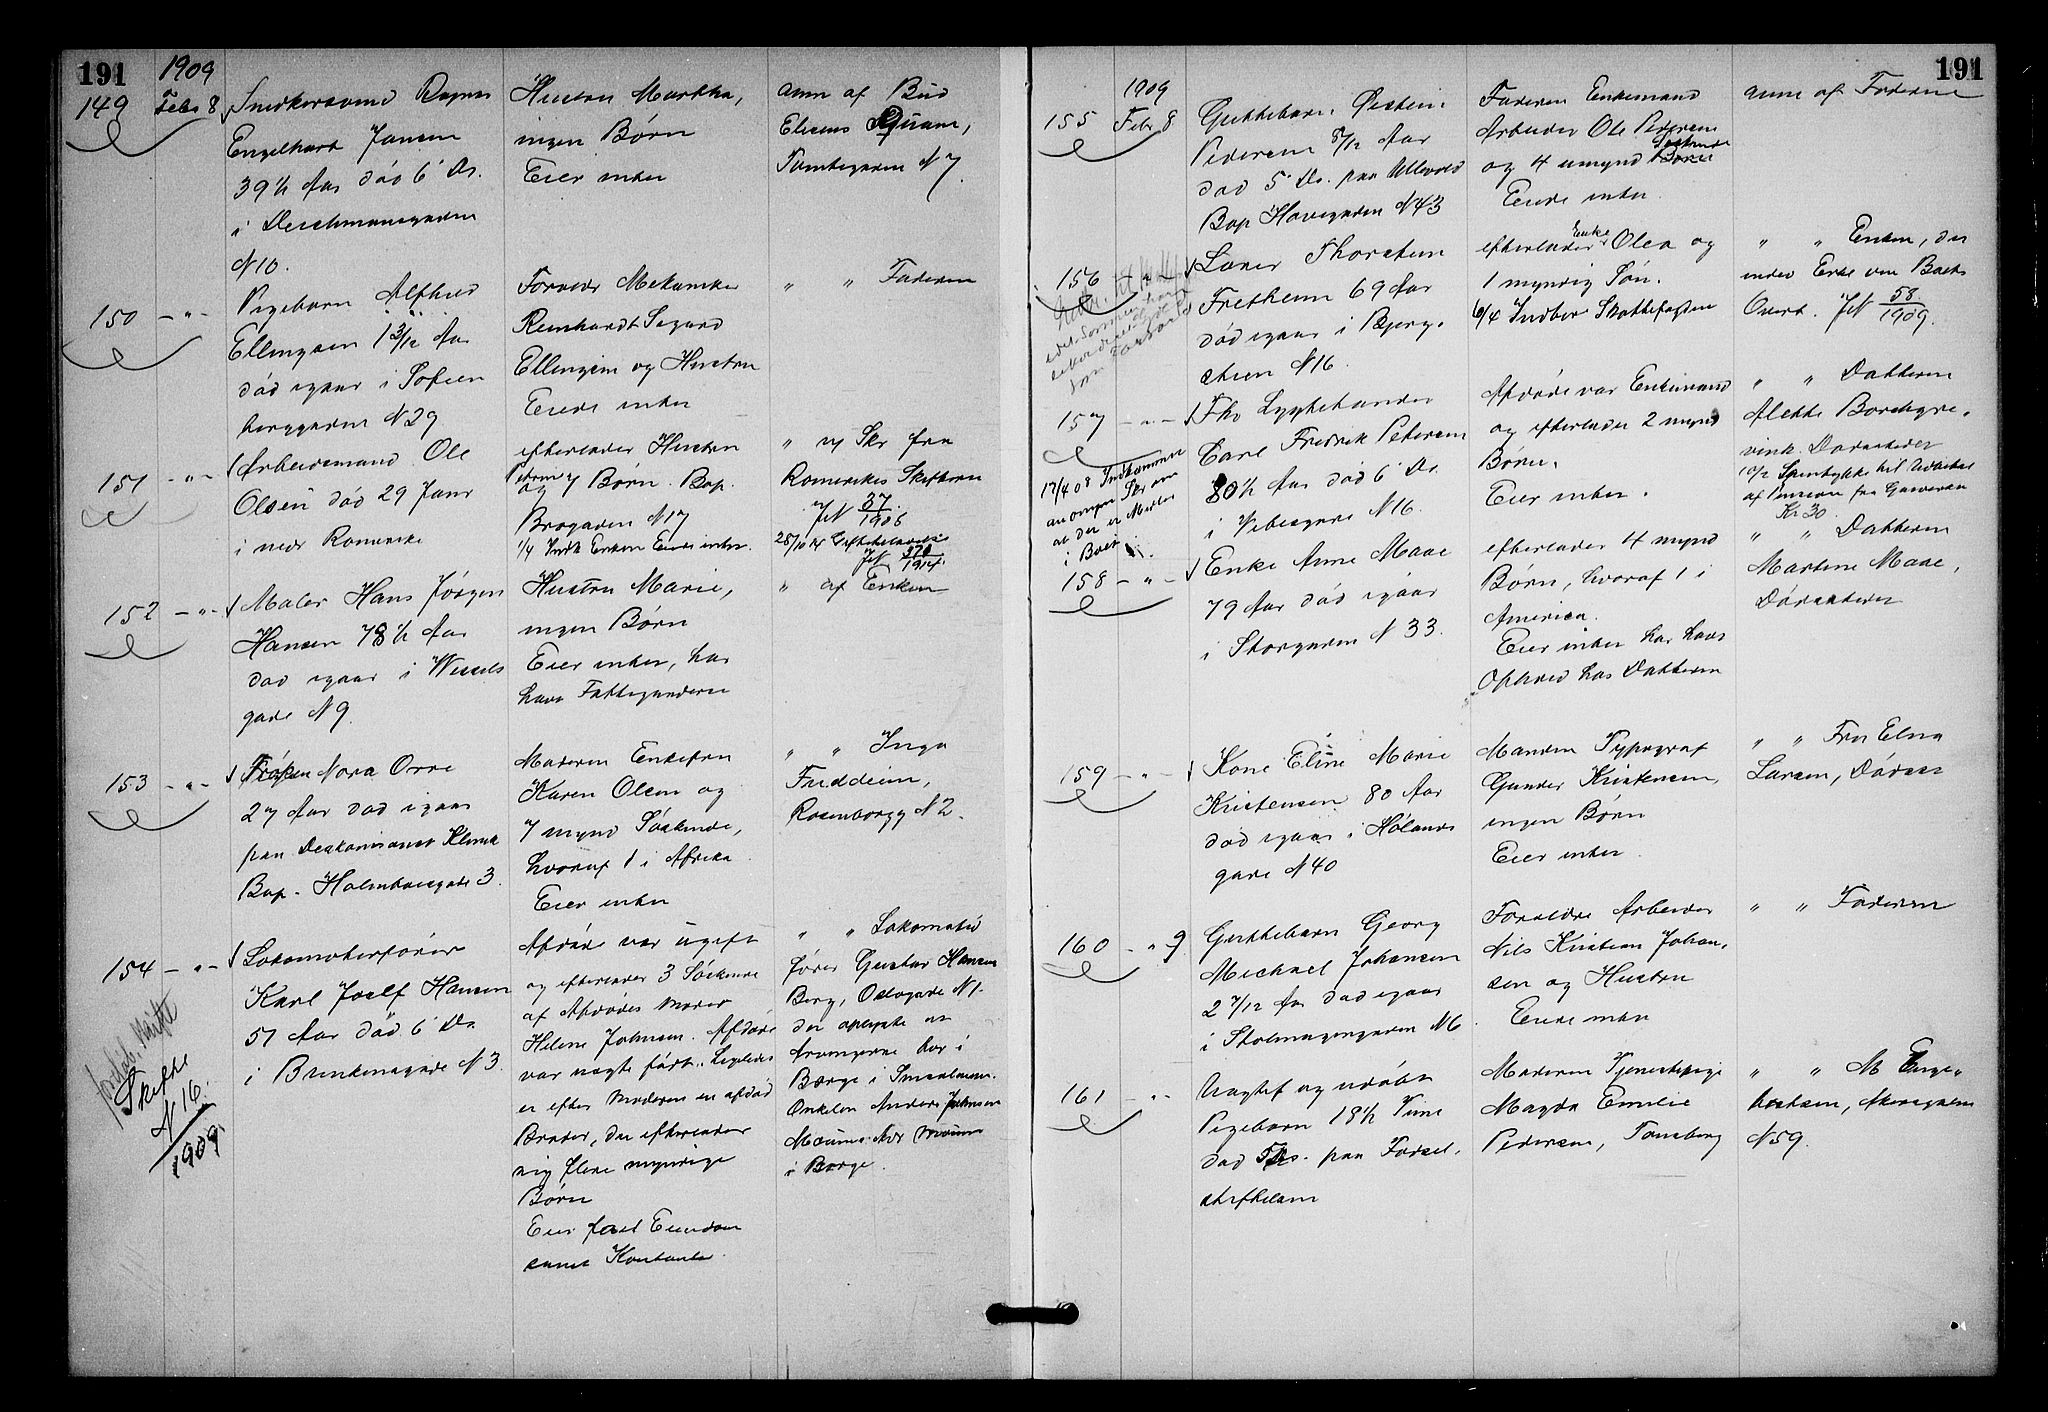 191
1909
149
Febr 8
Snedkersvend Ragnv
Engelhart Jansen
39½ Aar død 6 Ds.
i Deichmansgaden
N 10.
Hustru Martha,
ingen Børn
Eier intet
anm af Bud
Elisens Quam,
Tomtegaden N 7.
150 - " -
Pigebarn Alfhild
Ellingsen 1 3/12 Aar
død igaar i Sofien
berggaden N 29
Forældr Mekaniker
Reinhardt Sigurd
Ellingsen og Hustru
Eiede intet
" " Faderen
151 - " -
Arbeidsmand Ole
Olsen død 29 Janr
i nedr Romerike
efterlader Hustru
Petrine
og 7 Børn. Bop.
Brogaden N 17
1/4 Indk Enken Eiede intet.
" ig Skr fra
Romerikes Skifteren
JN 37/1908
28/10 14 Skiftebehandl
JN 370/1914
152 - " -
Maler Hans Jørgen
Hansen 78½ Aar
død igaar i Wessels
gade N 9.
Hustru Marie,
ingen Børn
Eier intet, har
havt Fattigunderst
" af Enken
153 - " -
Frøken Nora Orre
27 Aar død igaar
paa Diakonisseh Klinik
Bop. Holmboesgade 3.
Moderen Enkefru
Karen Olsen og
7 mynd Søskende,
hvoraf 1 i Afrika
Eier intet
" " Inga
Fuddeim,
Rosenborgg N 2.
154 - " -
Lokomotivfører
Karl Joelf Hansen
57 Aar død 6 Ds
i Brinkensgade N 3
Skifte
N 16.
1909.
Afdøde var ugift
og efterlader 3 Søskende
af Afdødes Moder
Helene Johnsen. Afdøde
var uægte født. Ligeledes
er efter Moderen en afdød
Broder, der efterlader
sig flere myndige
Børn
Eier fast Eiendom
samt Kontanter
" " Lokomotiv
fører Gustav Hansen
Berg, Oslogade N 1.
der oplyste at
Arvingerne bor i
Borge i Smaalenen.
Onkelen Anders Johnsen
Moum Adr Moum
i Borge.
191
1909
155
Febr 8
Guttebarn Øistein
Pedersen 8/12 Aar
død 5 Ds. paa Ullevold
Bop Havegaden N 43
Faderen Enkemand
Arbeider Ole Pedersen
og 4 umynd Søskende
Eiede intet.
anm af Faderen
156
Laurer Thorstein
Fretheim 69 Aar
død igaar i Bjerg.
stien N 16.
efterlader Enke Olea og
1 myndig Søn.
6/4 Indber Skattefogden
" " Enken, der
sidder i
Overt. JN 58/1909.
157 - " -
17/4 09 Indkommet
anonym Skr om
at der er Midler
i Boet
Fhv Lysthandler
Carl Fredrik Petersen
80½ Aar død 6 Ds.
i Vibesgade N 16.
Afdøde var Enkemand
og efterlader 2 mynd
Børn.
Eier intet.
" " Datteren
Alette Borchgre.
vink. Dødsattester
10/2 Samtykke til Udbetal
af Pension fra
Kr 30
158 - " -
Enke Anne Maae
79 Aar død igaar
i Storgaden N 33.
efterlader 4 mynd
Børn, hvoraf 1 i
America.
Eier intet har havt
Ophold hos Datteren
" " Datteren
Martine Maae,
Dødsattester
159 - " -
Kone Eline Marie
Kristensen 80 Aar
død igaar i Hølands
gade N 40
Manden Typograf
Gunder Kristensen,
ingen Børn
Eier intet
" " Fru Elna
Larsen, Dødsat
160 - " 9
Guttebarn Georg
Michael Johansen
2 7/12 Aar død igaar
i Stolmagergaden N 6
Forældre Arbeider
Nils Kristian Johan.
sen og Hustru
Eiede intet
" " Faderen
161 - " -
Uægtef og udøbt
Pigebarn 18½ Time
død 7 Ds. paa Fødsel.
stiftelsen
Moderen Tjenestepige
Magda Emilie
Pedersen, Tønsberg
" " M Enge.
bretsen, Akersgaden
N 59.